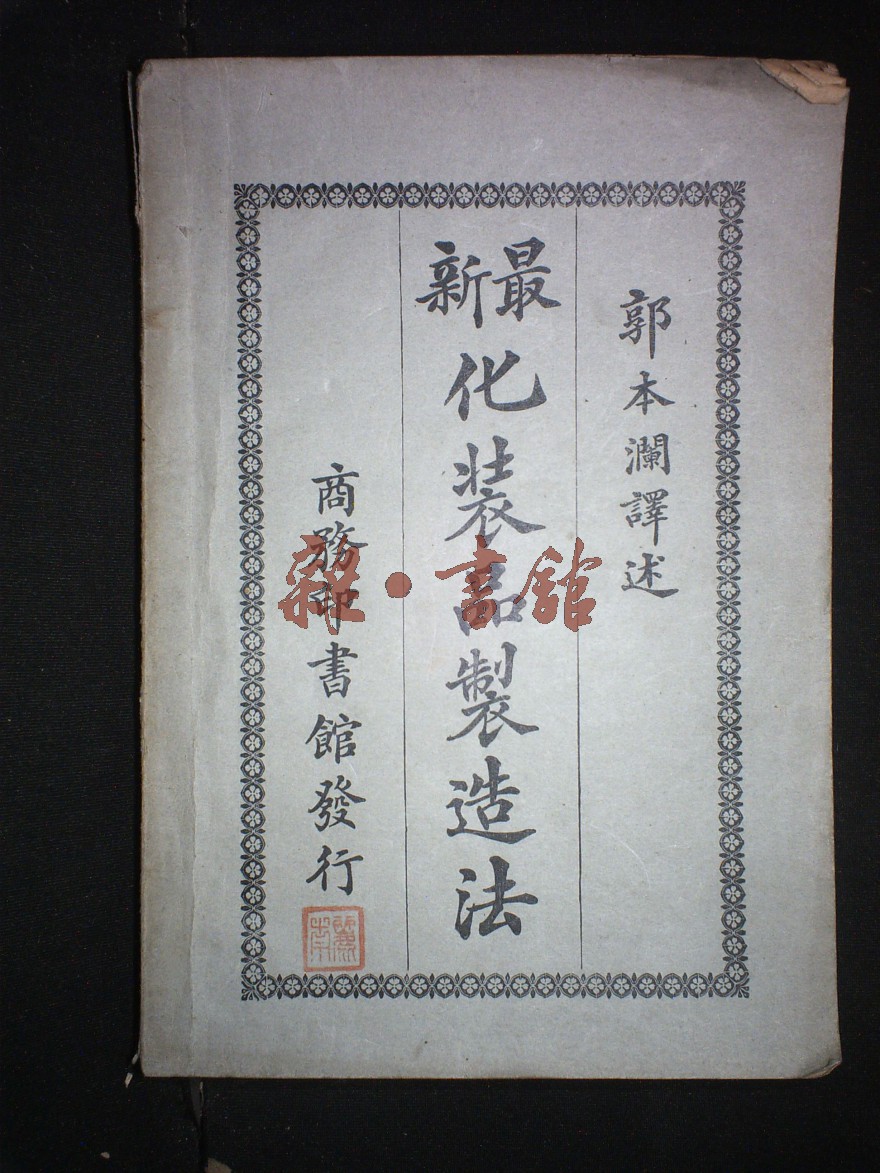 郭本瀾譯述
最新
化装品製造法
商務印書館發行
雜·書舘